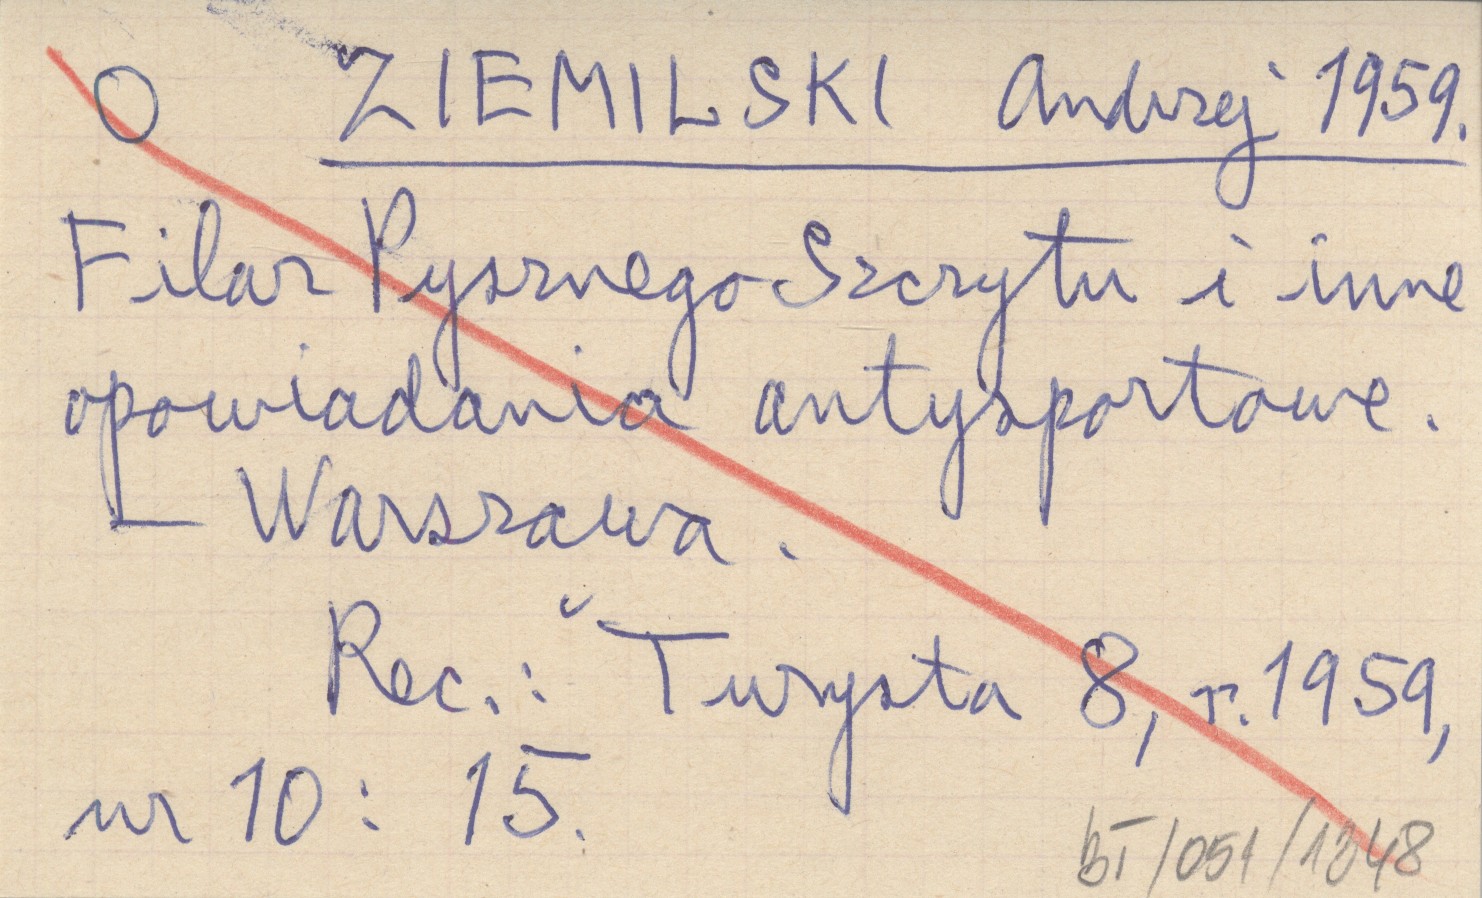 O ZIEMILSKI Andrzej 1959.
Filar Pysznego Szczytu i inne
opowiadania antysportowe.
— Warszawa.
Rec.: Turysta 8, r. 1959,
nr 10: 15.
BT/051/1348